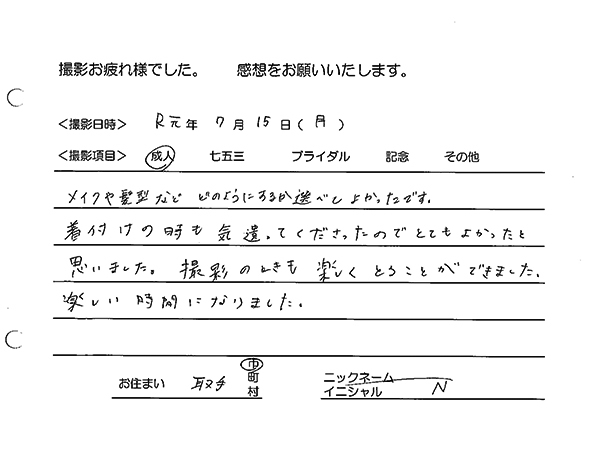 撮影お疲れ様でした。 感想をお願いいたします。
<撮影日時> R元年 7月 15日(月)
<撮影項目> 成人 七五三 ブライダル 記念 その他
メイクや髪型など どのようにするか選べしよかったです。
着付けの時も気遣ってくださったのでとてもよかったと
思いました。撮影のときも楽しくとることができました。
楽しい時間になりました。
お住まい 取手 市
町
村
ニックネーム
イニシャル N